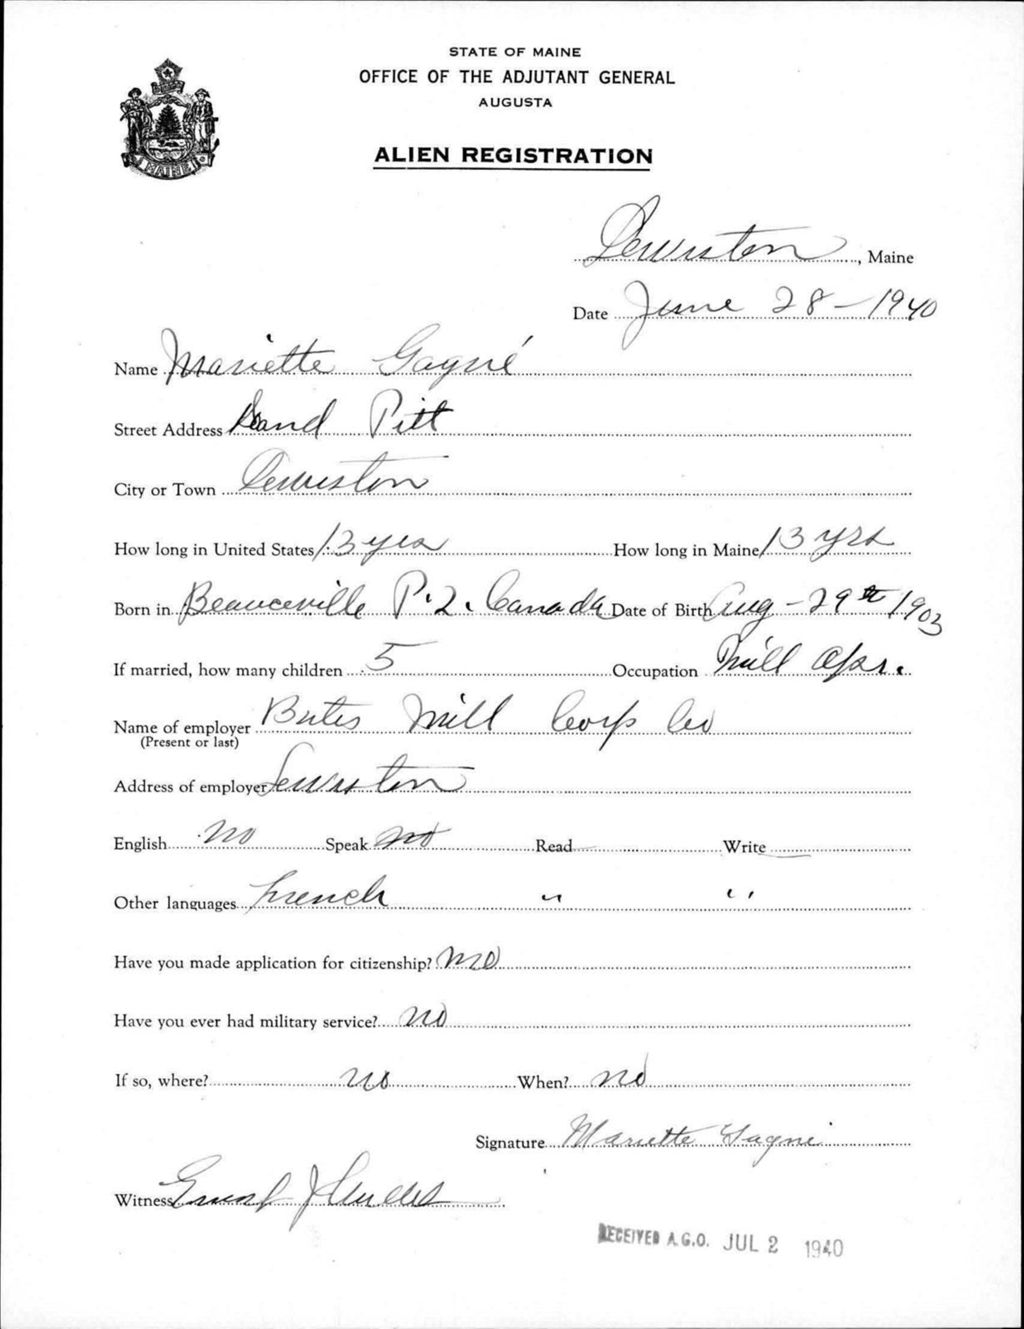 STATE OF MAINE
OFFICE OF THE ADJUTANT GENERAL
AUGUSTA
ALIEN REGISTRATION
MAINE
Lewiston, Maine
Date June 28 - 1940
Name Mariette Gagné
Street Address Sand Pitt
City or Town Lewiston
How long in United States 13 yrs How long in Maine 13 yrs
Born in Beauceville P.Q. Canada Date of Birth Aug - 29th 1903
If married, how many children 5 Occupation Mill Opr.
Name of employer Bates Mill Corp Co
(Present or last)
Address of employer Lewiston
English no Speak no Read Write
Other languages French " "
Have you made application for citizenship? no
Have you ever had military service? no
If so, where? no When? no
Signature Mariette Gagne
Witness
RECEIVED A.G.O. JUL 2 1940